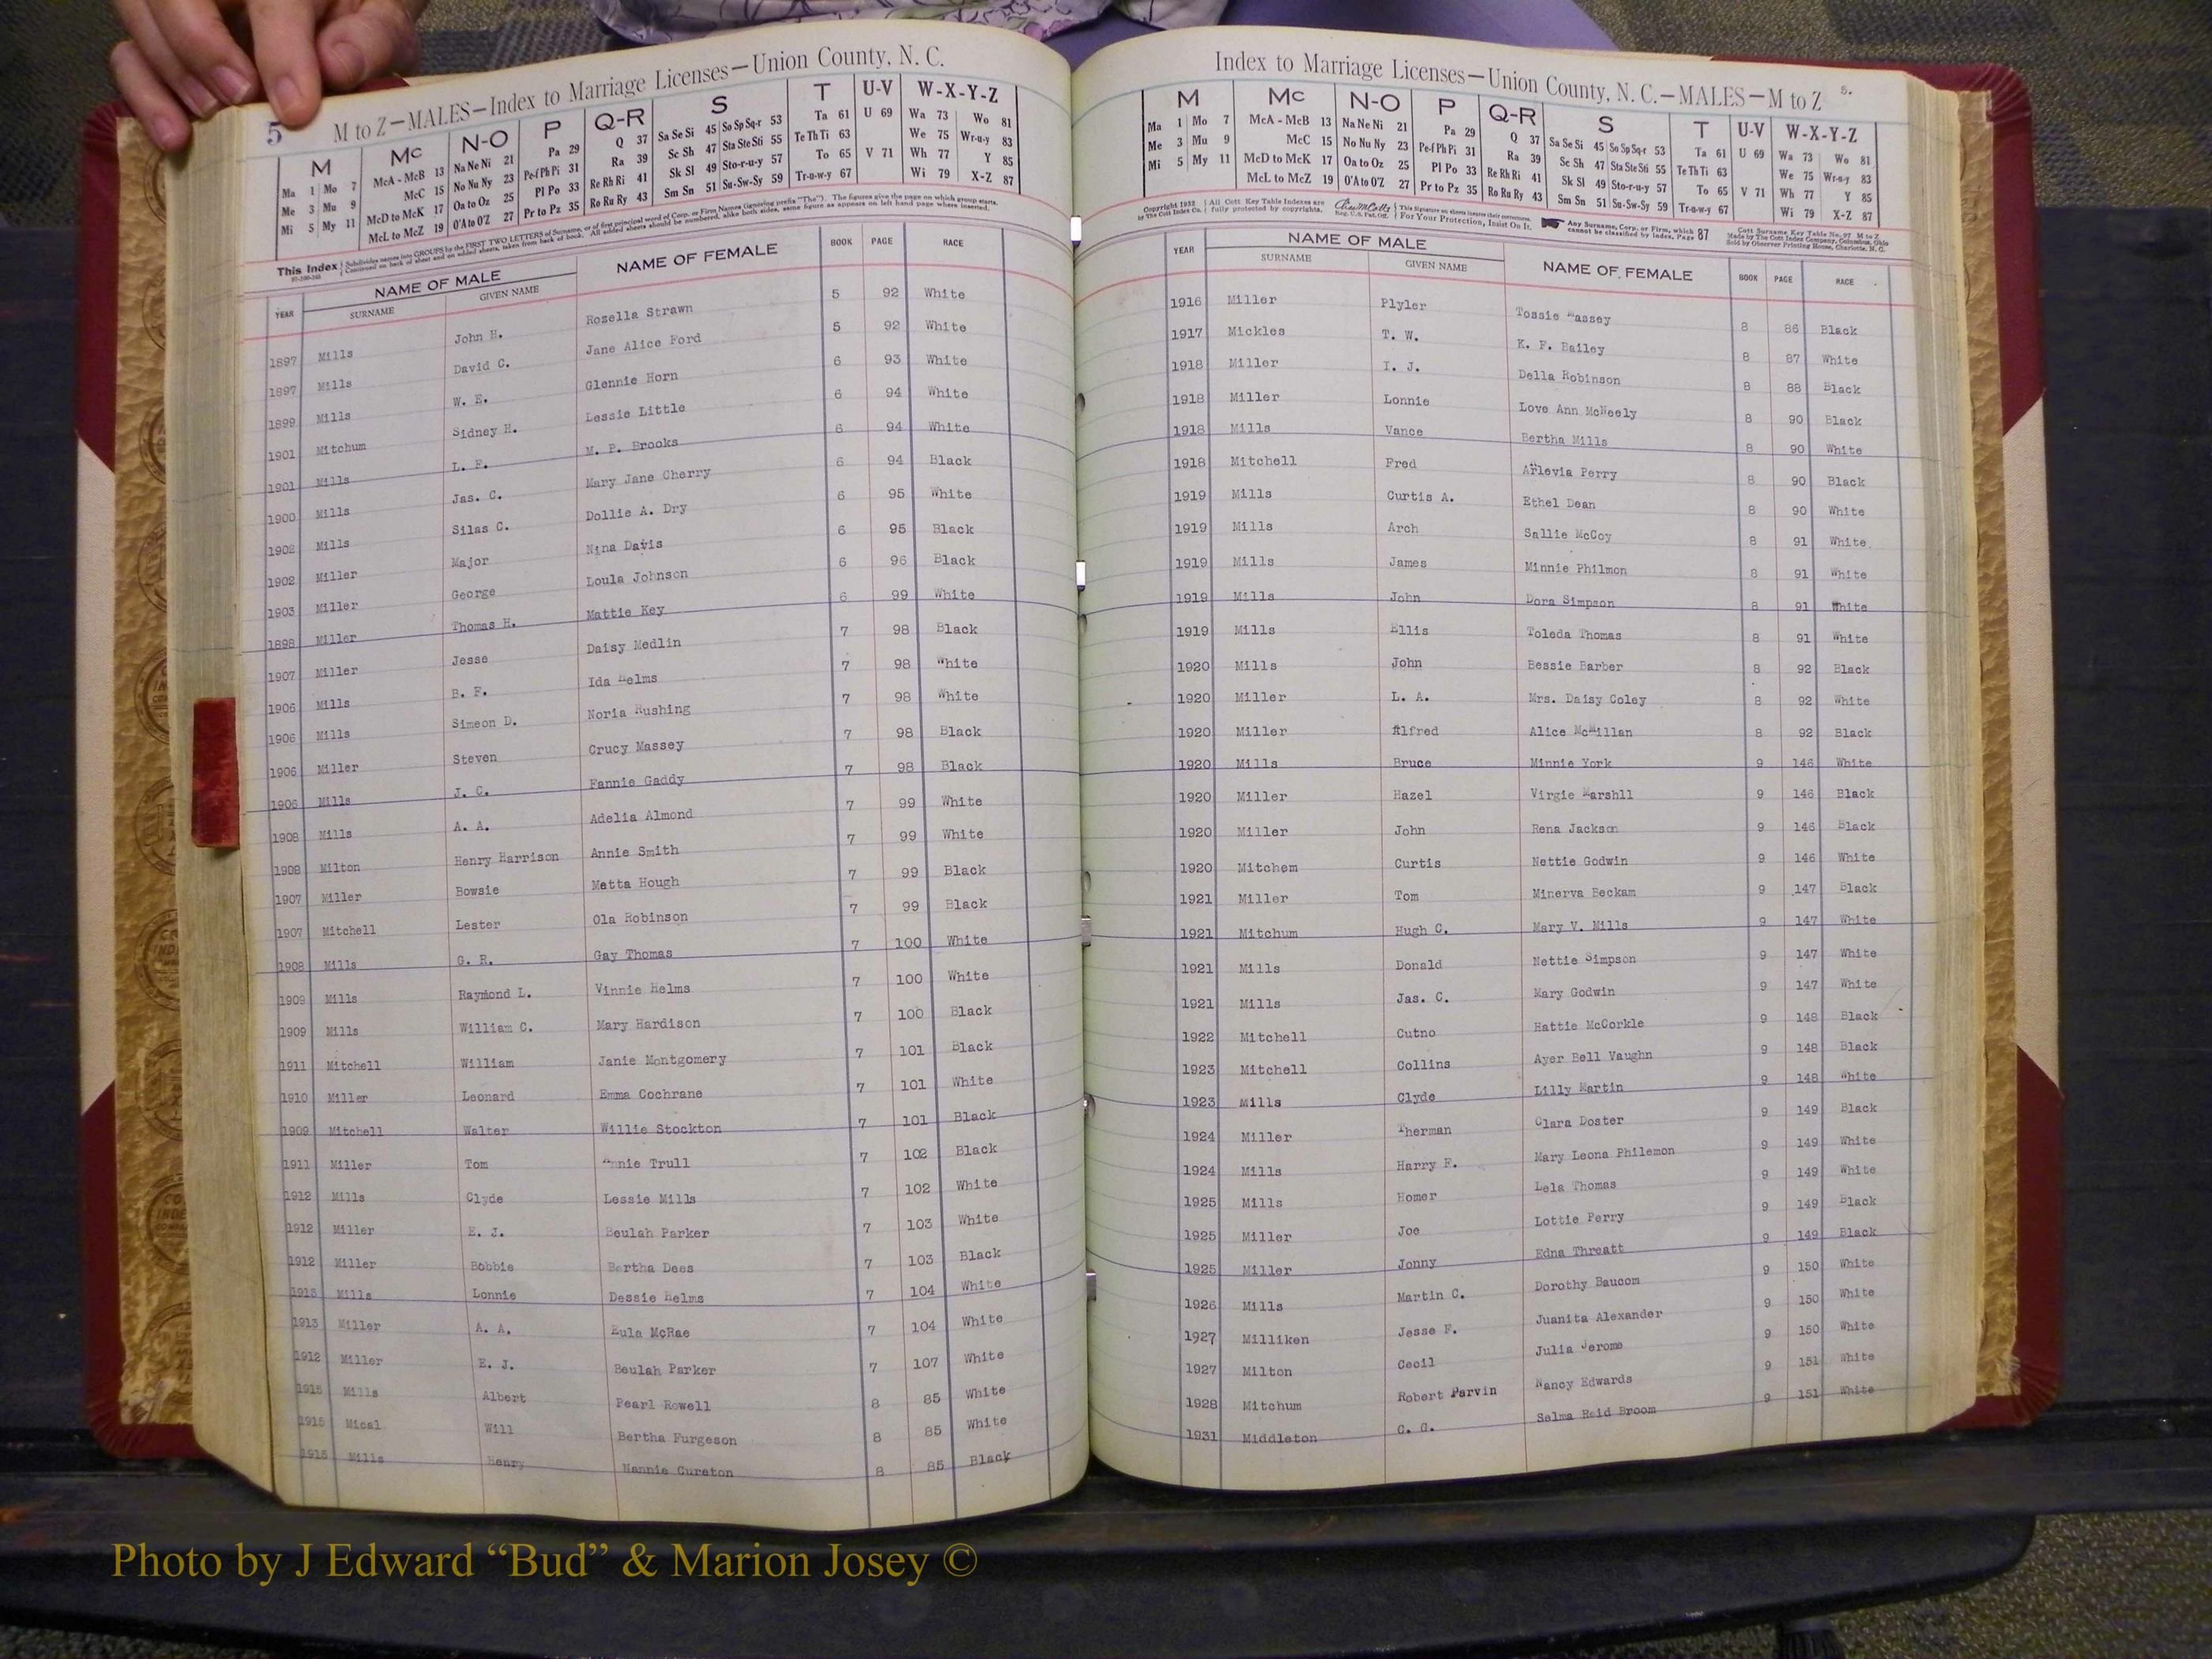 5 M to Z—MALES—Index to Marriage Licenses—Union County, N. C.
M Mc N-O P Q-R S T U-V W-X-Y-Z
Ma 1 Mo 7 McA - McB 13 Na Ne Ni 21 Pa 29 Q 37 Sa Se Si 45 So Sp Sq-r 53 Ta 61 U 69 Wa 73 Wo 81
Me 3 Mu 9 McC 15 No Nu Ny 23 Pe-f Ph Pi 31 Ra 39 Sc Sh 47 Sta Ste Sti 55 Te Th Ti 63 We 75 Wr-u-y
Mi 5 My 11 McD to McK 17 Oa to Oz 25 Pl Po 33 Re Rh Ri 41 Sk Sl 49 Sto-r-u-y 57 To 65 V 71 Wh 77 Y 85
McL to McZ 19 O'A to O'Z 27 Pr to Pz 35 Ro Ru Ry 43 Sm Sn 51 Su-Sw-Sy 59 Tr-u-w-y 67 Wi 79 X-Z 87
This Index Subdivides names into GROUPS by the FIRST TWO LETTERS of Surname, or of first principal word of Corp. or Firm Names (ignoring prefix "The"). The figures give the page on which group starts.
Continued on back of sheet and on added sheets, taken from back of book. All added sheets should be numbered, alike both sides, same figure as appears on left hand page where inserted.
YEAR NAME OF MALE SURNAME GIVEN NAME NAME OF FEMALE BOOK PAGE RACE
1897 Mills John H. Rozella Strawn 5 92 White
1897 Mills David C. Jane Alice Ford 5 92 White
1899 Mills W. E. Glennie Horn 6 93 White
1901 Mitchum Sidney H. Lessie Little 6 94 White
1901 Mills L. F. M. P. Brooks 6 94 White
1900 Mills Jas. C. Mary Jane Cherry 6 94 Black
1902 Mills Silas C. Dollie A. Dry 6 95 White
1902 Miller Major Nina Davis 6 95 Black
1903 Miller George Loula Johnson 6 96 Black
1898 Miller Thomas H. Mattie Key 6 99 White
1907 Miller Jesse Daisy Medlin 7 98 Black
1906 Mills B. F. Ida Helms 7 98 White
1906 Mills Simeon D. Noria Rushing 7 98 White
1906 Miller Steven Crucy Massey 7 98 Black
1906 Mills J. C. Fannie Gaddy 7 98 Black
1908 Mills A. A. Adelia Almond 7 99 White
1908 Milton Henry Harrison Annie Smith 7 99 White
1907 Miller Bowsie Metta Hough 7 99 Black
1907 Mitchell Lester Ola Robinson 7 99 Black
1908 Mills G. R. Gay Thomas 7 100 White
1909 Mills Raymond L. Vinnie Helms 7 100 White
1909 Mills William C. Mary Hardison 7 100 Black
1911 Mitchell William Janie Montgomery 7 101 Black
1910 Miller Leonard Emma Cochrane 7 101 White
1909 Mitchell Walter Willie Stockton 7 101 Black
1911 Miller Tom Annie Trull 7 102 Black
1912 Mills Clyde Lessie Mills 7 102 White
1912 Miller E. J. Beulah Parker 7 103 White
1912 Miller Bobbie Bertha Dees 7 103 Black
Mills Lonnie Dessie Helms 7 104 White
1913 Miller A. A. Eula McRae 7 104 White
1912 Miller E. J. Beulah Parker 7 107 White
Mills Albert Pearl Rowell 8 85 White
Mical Will Bertha Furgeson 8 85 White
Mills Henry Nannie Cureton 8 85 Black
Index to Marriage Licenses—Union County, N. C.—MALES—M to Z 5.
M Mc N-O P Q-R S T U-V W-X-Y-Z
Ma 1 Mo 7 McA - McB 13 Na Ne Ni 21 Pa 29 Q 37 Sa Se Si 45 So Sp Sq-r 53 Ta 61 U 69 Wa 73 Wo 81
Me 3 Mu 9 McC 15 No Nu Ny 23 Pe-f Ph Pi 31 Ra 39 Sc Sh 47 Sta Ste Sti 55 Te Th Ti 63 We 75 Wr-u-y 83
Mi 5 My 11 McD to McK 17 Oa to Oz 25 Pl Po 33 Re Rh Ri 41 Sk Sl 49 Sto-r-u-y 57 To 65 V 71 Wh 77 Y 85
McL to McZ 19 O'A to O'Z 27 Pr to Pz 35 Ro Ru Ry 43 Sm Sn 51 Su-Sw-Sy 59 Tr-u-w-y 67 Wi 79 X-Z 87
Copyright 1932 All Cott Key Table Indexes are This Signature on sheets insures their correctness. Any Surname, Corp. or Firm, which Cott Surname Key Table No. 97 M to Z
by The Cott Index Co. fully protected by copyrights. Reg. U.S. Pat. Off. For Your Protection, Insist On It. cannot be classified by Index, Page 87 Made by The Cott Index Company, Columbus, Ohio
Sold by Observer Printing House, Charlotte, N. C.
YEAR NAME OF MALE SURNAME GIVEN NAME NAME OF FEMALE BOOK PAGE RACE
1916 Miller Plyler Tossie Massey 8 86 Black
1917 Mickles T. W. K. F. Bailey 8 87 White
1918 Miller I. J. Della Robinson 8 88 Black
1918 Miller Lonnie Love Ann McNeely 8 90 Black
1918 Mills Vance Bertha Mills 8 90 White
1918 Mitchell Fred Arlevia Perry 8 90 Black
1919 Mills Curtis A. Ethel Dean 8 90 White
1919 Mills Arch Sallie McCoy 8 91 White
1919 Mills James Minnie Philmon 8 91 White
1919 Mills John Dora Simpson 8 91 White
1919 Mills Ellis Toleda Thomas 8 91 White
1920 Mills John Bessie Barber 8 92 Black
1920 Miller L. A. Mrs. Daisy Coley 8 92 White
1920 Miller Alfred Alice McMillan 8 92 Black
1920 Mills Bruce Minnie York 9 146 White
1920 Miller Hazel Virgie Marshll 9 146 Black
1920 Miller John Rena Jackson 9 146 Black
1920 Mitchem Curtis Nettie Godwin 9 146 White
1921 Miller Tom Minerva Beckam 9 147 Black
1921 Mitchum Hugh C. Mary V. Mills 9 147 White
1921 Mills Donald Nettie Simpson 9 147 White
1921 Mills Jas. C. Mary Godwin 9 147 White
1922 Mitchell Cutno Hattie McCorkle 9 148 Black
1923 Mitchell Collins Ayer Bell Vaughn 9 148 Black
1923 Mills Clyde Lilly Martin 9 148 White
1924 Miller Therman Clara Doster 9 149 Black
1924 Mills Harry F. Mary Leona Philemon 9 149 White
1925 Mills Homer Lela Thomas 9 149 White
1925 Miller Joe Lottie Perry 9 149 Black
1925 Miller Jonny Edna Threatt 9 149 Black
1926 Mills Martin C. Dorothy Baucom 9 150 White
1927 Milliken Jesse F. Juanita Alexander 9 150 White
1927 Milton Cecil Julia Jerome 9 150 White
1928 Mitchum Robert Parvin Nancy Edwards 9 151 White
1931 Middleton C. G. Selma Reid Broom 9 151 White
Photo by J Edward “Bud” & Marion Josey ©